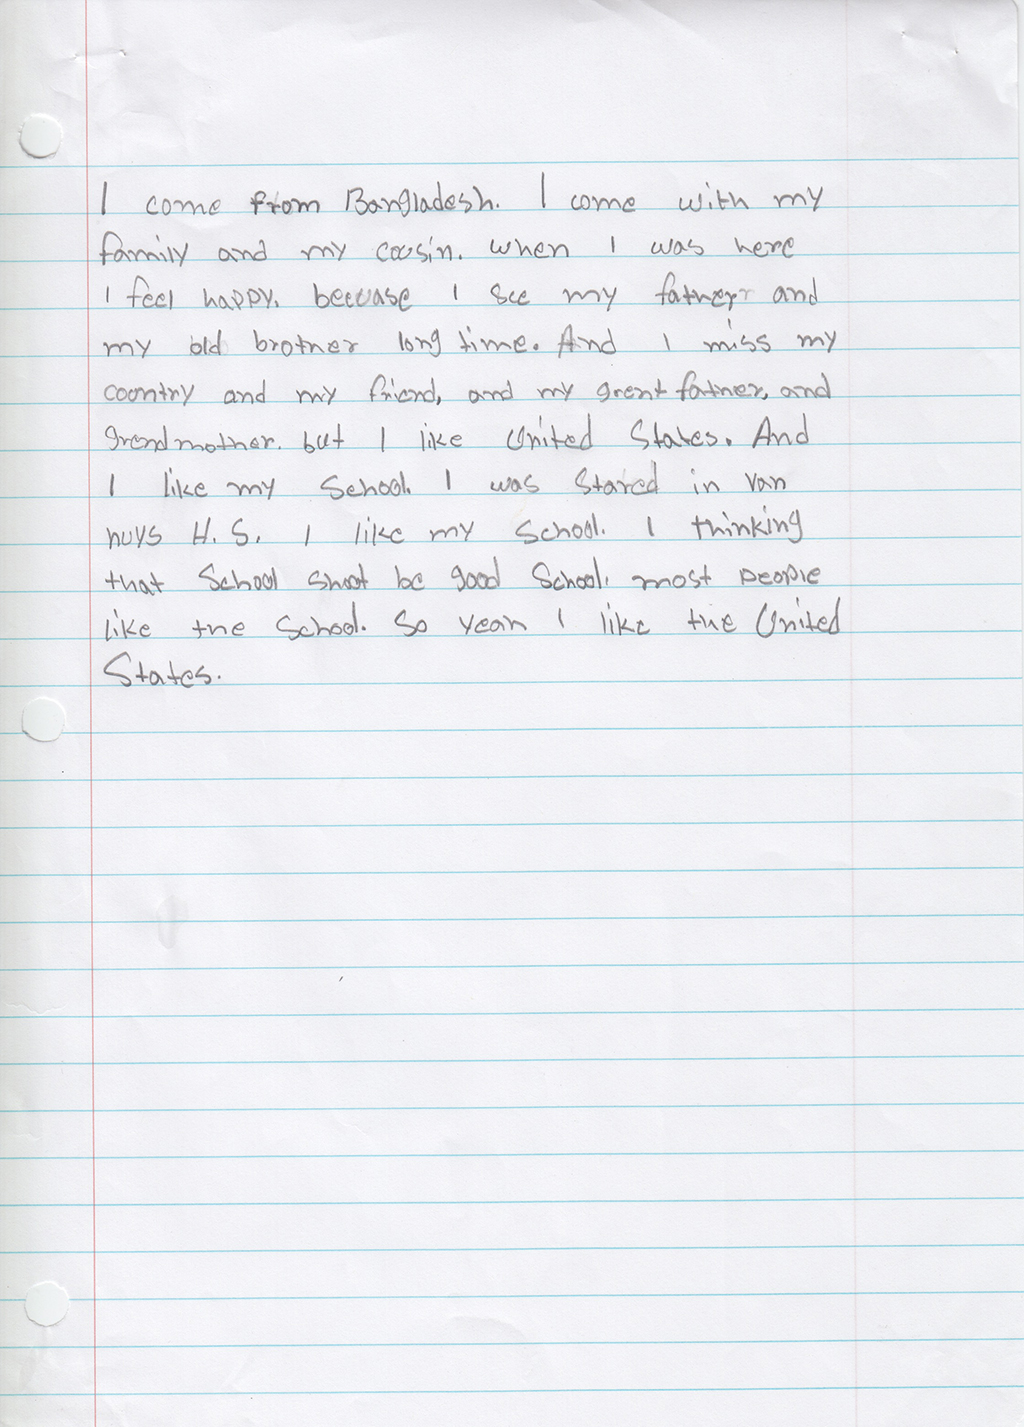 I come from Bangladesh. I come with my
family and my coosin. when I was here
I feel happy. becuase I see my father and
my old brother long time. And I miss my
coontry and my friend, and my grent father, and
grendmother. but I like United States. And
I like my School. I was Stared in Van
nuys H.S. I like my School. I thinking
that School shoot be good School. most people
like the School. So yeah I like the United
States.